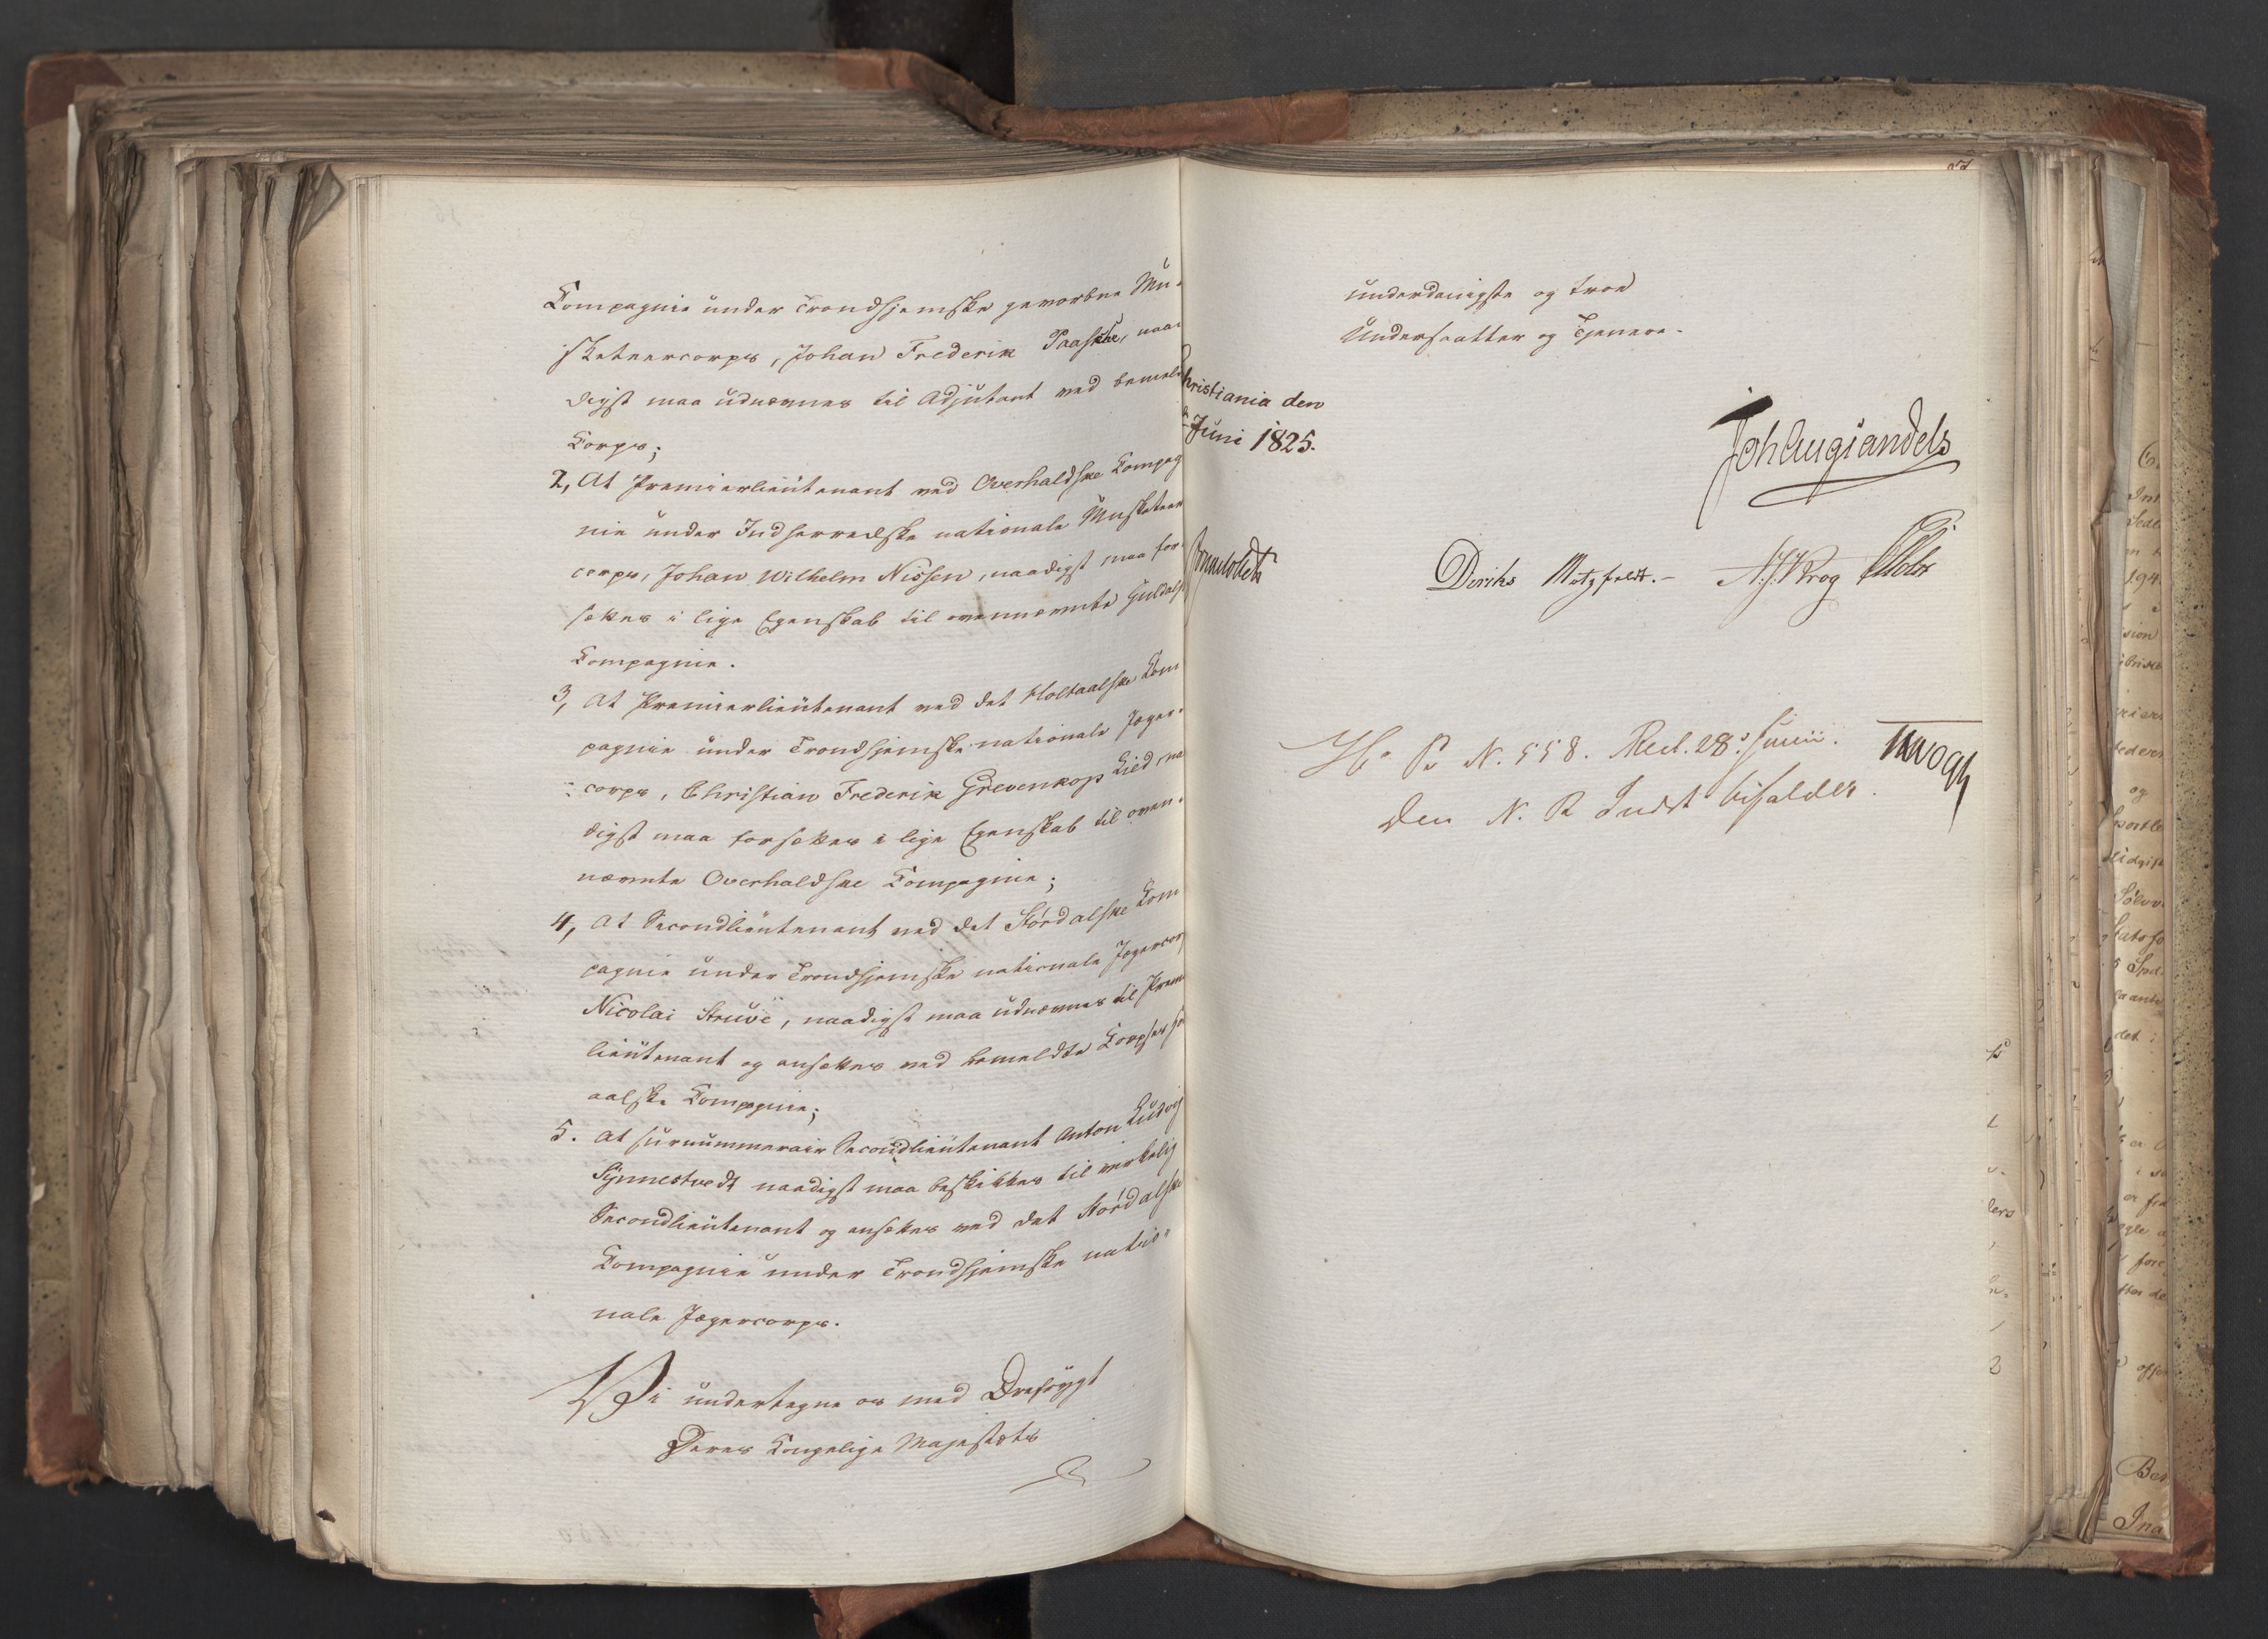 Compagnie under Trondhjemske geworbne Mu-
sketeercorps, Johan Frederik Paaske, naa-
digst maa udnævnes til Adjutant ved bemeld
Corps;
2, At Premierlieutenant ved Overhaldske Compag
nie under Indherredske nationale Musketeer
corps, Johan Wilhelm Nissen, naadigst maa for-
sættes i lige Egenskab til ovennævnte Guldals
Compagnie.
3, At Premierlieutenant ved det Holtaalske Com
pagnie under Trondhjemske nationale Jæger-
corps, Christian Frederik Grevenkop Lied, na
digst maa forsættes i lige Egenskab til oven-
nævnte Overhaldske Compagnie;
4, At Secondlieutenant ved det Størdalske Com
pagnie under Trondhjemske nationale Jægercor
Nicolai Struve, naadigst maa udnævnes til Prem
lieutenant og ansættes ved bemeldte Corpses
aalske Compagnie;
5. At surnummerair Secondlieutenant Anton Ludvig
Synnestvedt naadigst maa beskikkes til virkelig
Secondlieutenant og ansættes ved det Størdalske
Compagnie under Trondhjemske natio-
nale Jægercorps.
Vi undertegne os med Dybeste
Deres Kongelige Majestæts
underdanigste og troe
Undersaatter og Tjenere.
Christiania den
Juni 1825.
Joh Aug Sandels
Sommerfeldt
Diriks Motzfeldt. N. J. Krog
No. 558. Red. 28 Junii.
Den N. R. Indst bifaldes.
THKrogh